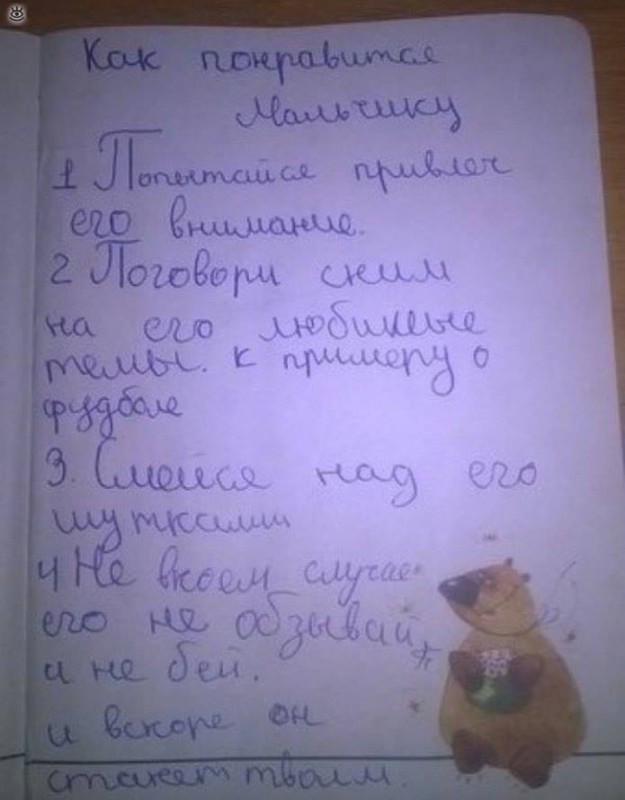 Как понравится
Мальчику
1 Попытайся привлеч
его внимание.
2 Поговори сним
на его любимые
темы. к примеру о
фудболе
3. Смейся над его
шутками
4 Не вкоем случае
его не обзывай
и не бей.
и вскоре он
станет твоим.